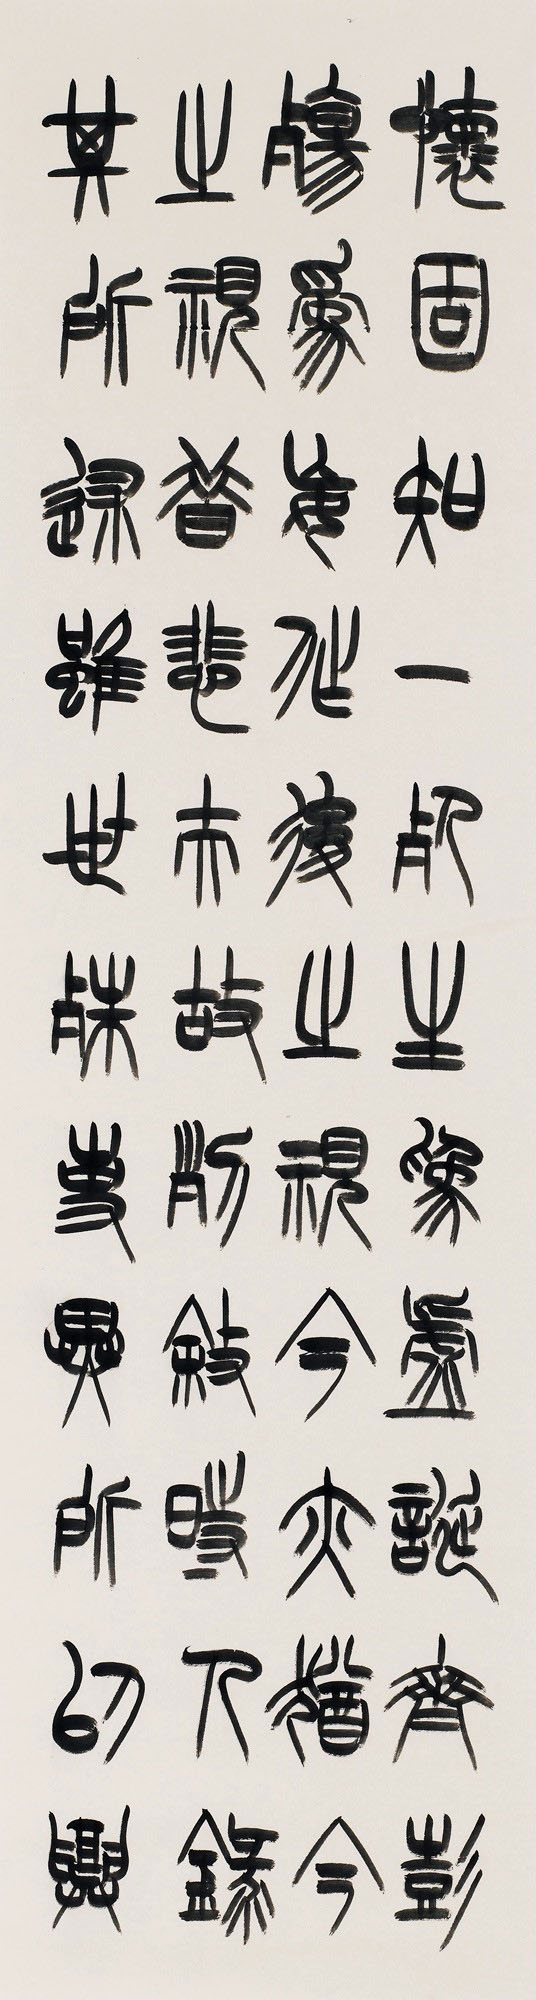 懷固知一死生為虛誕齊彭
殤為妄作後之視今亦猶今
之視昔悲夫故列敘時人錄
其所述雖世殊事異所以興